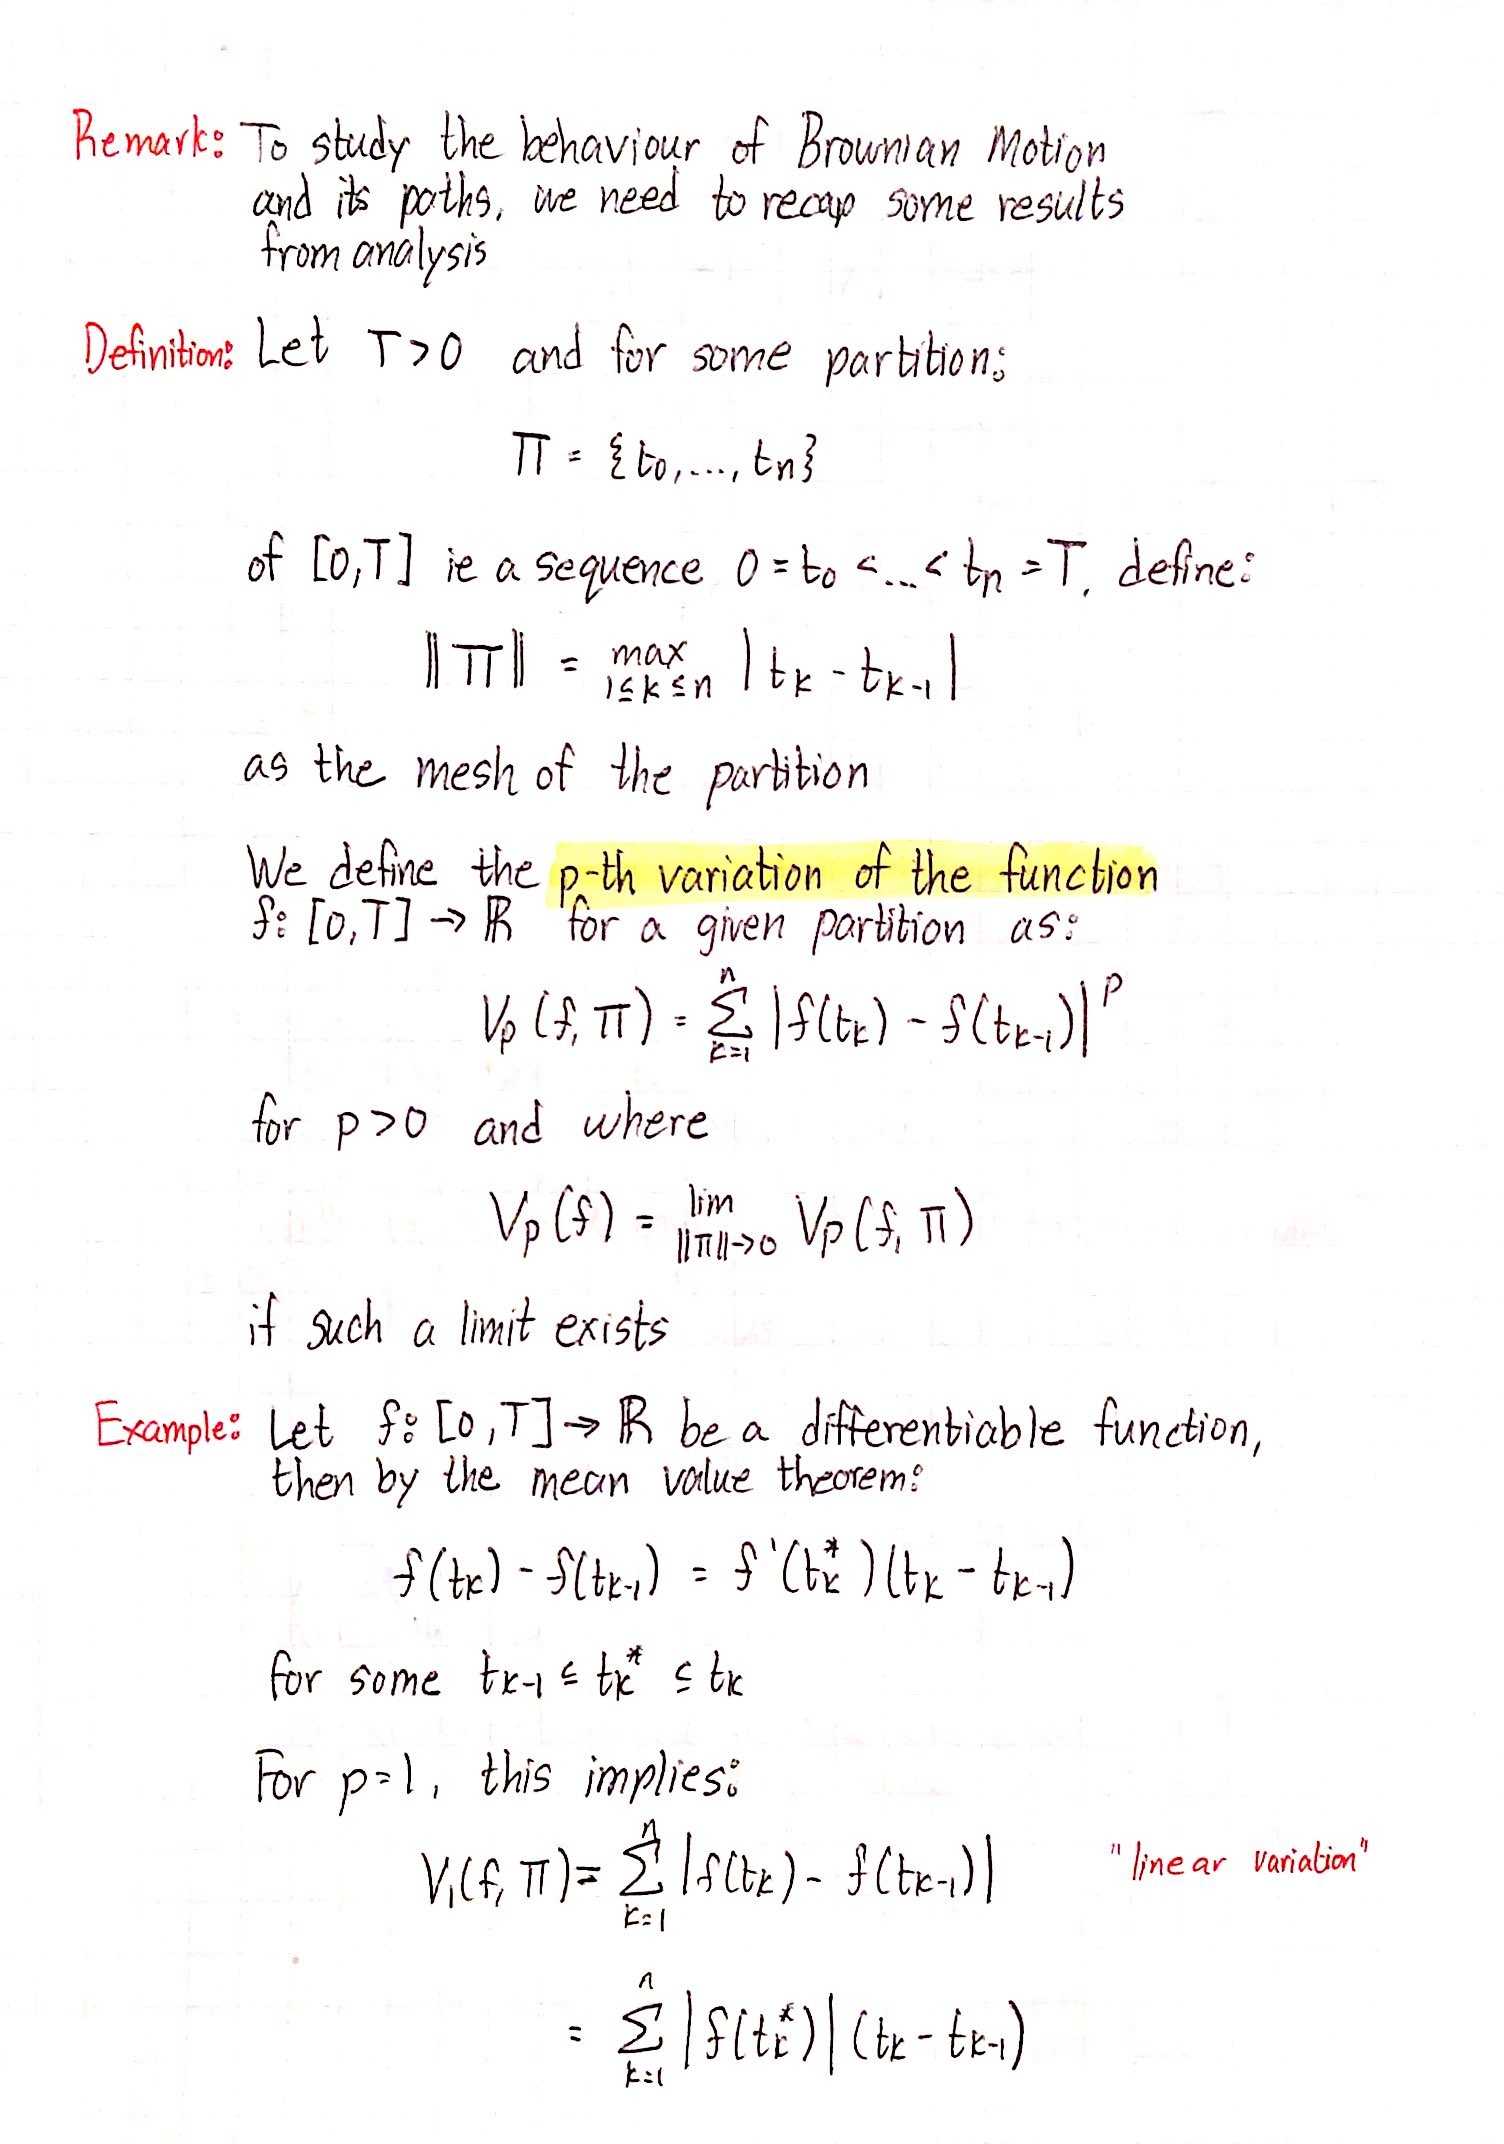 Remark: To study the behaviour of Brownian Motion
and its paths, we need to recap some results
from analysis
Definition: Let T>0 and for some partition:
Π = {t₀,...,tₙ}
of [0,T] ie a sequence 0 = t₀ <...< tₙ = T, define:
‖Π‖ = max_{1≤k≤n} |t_k - t_{k-1}|
as the mesh of the partition
We define the p-th variation of the function
f: [0,T] → ℝ for a given partition as:
V_p(f, Π) = Σ_{k=1}^{n} |f(t_k) - f(t_{k-1})|^p
for p>0 and where
V_p(f) = lim_{‖Π‖→0} V_p(f, Π)
if such a limit exists
Example: Let f: [0,T] → ℝ be a differentiable function,
then by the mean value theorem:
f(t_k) - f(t_{k-1}) = f'(t_k^*)(t_k - t_{k-1})
for some t_{k-1} ≤ t_k^* ≤ t_k
For p=1, this implies:
V₁(f, Π) = Σ_{k=1}^{n} |f(t_k) - f(t_{k-1})| "linear variation"
= Σ_{k=1}^{n} |f(t_k^*)| (t_k - t_{k-1})